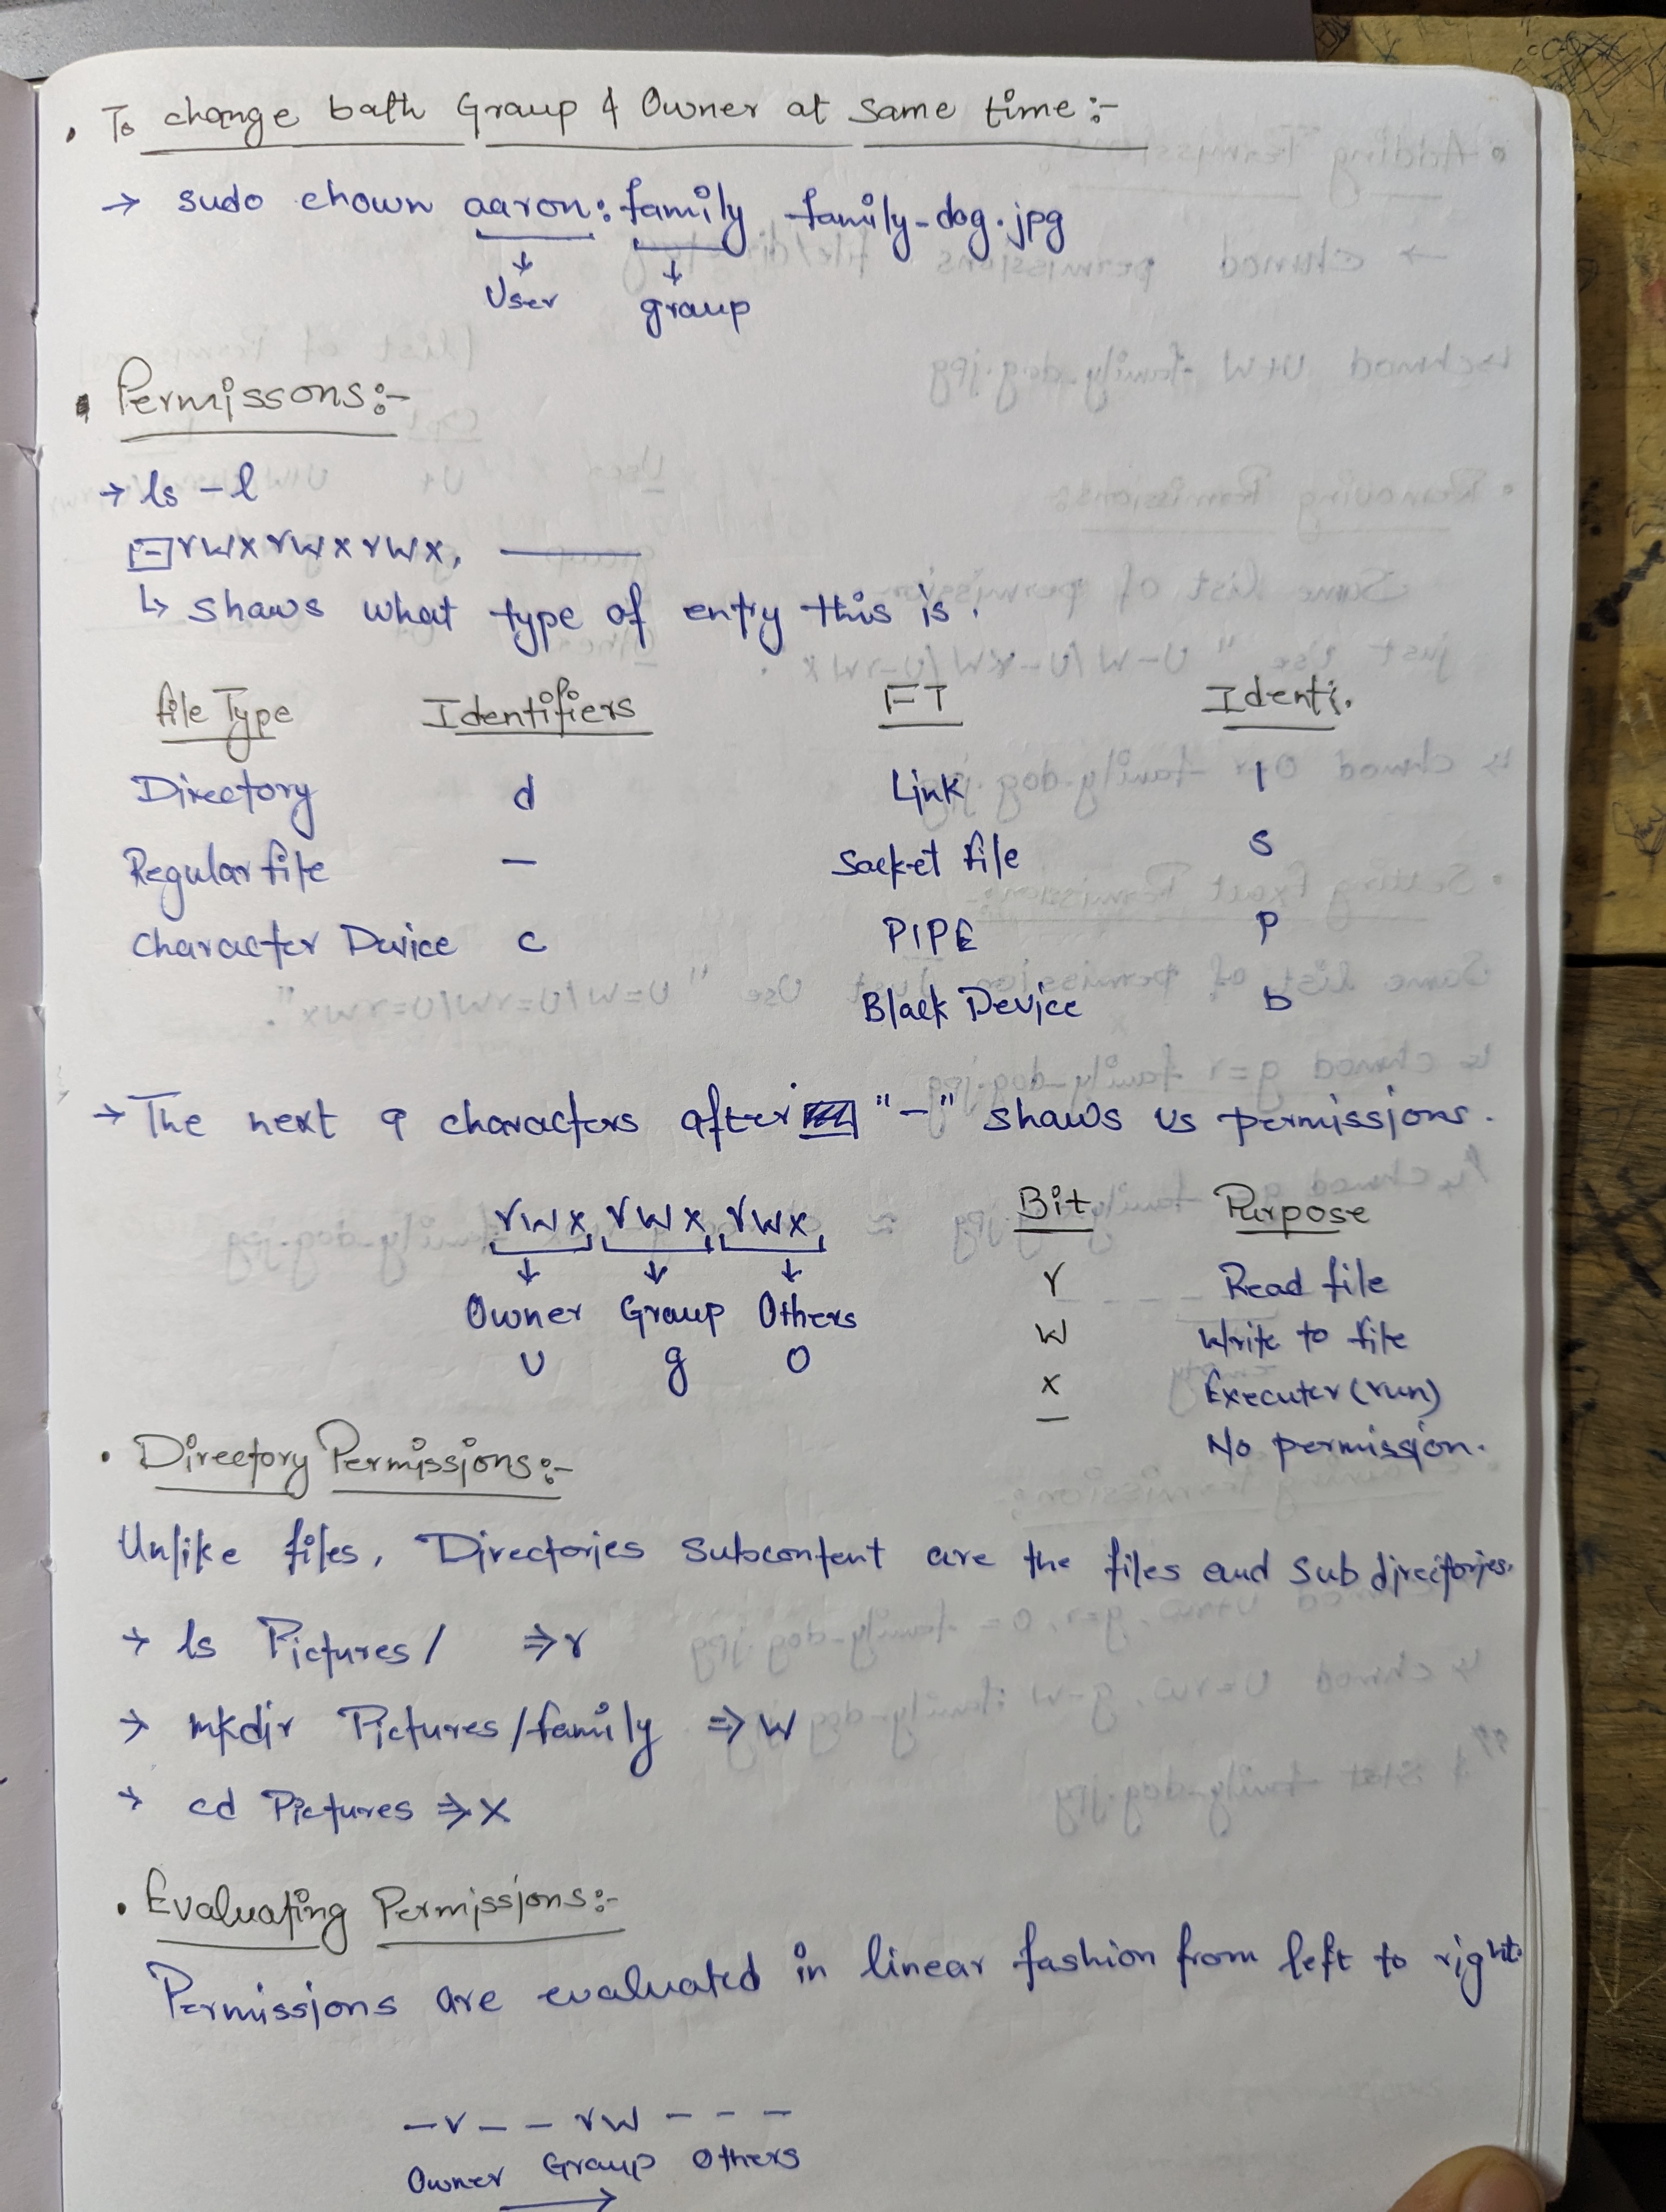 • To change both Group & Owner at same time:-
→ sudo chown aaron:family family-dog.jpg
↓ ↓
User group
• Permissons:-
→ ls -l
-rwxrwxrwx.
↳ shows what type of entry this is.
file Type Identifiers FT Identi.
Directory d Link l
Regular file — Socket file s
Character Device c PIPE p
Block Device b
→ The next 9 characters after "-" shows us permissions.
rwx rwx rwx Bit Purpose
↓ ↓ ↓ r Read file
Owner Group Others w Write to file
u g o x Executer (run)
— No permission.
• Directory Permissions:-
Unlike files, Directories subcontent are the files and subdirectories.
→ ls Pictures/ ⇒ r
→ mkdir Pictures/family ⇒ w
→ cd Pictures ⇒ x
• Evaluating Permissions:-
Permissions are evaluated in linear fashion from left to right.
- r - - r w - - -
Owner Group Others
→